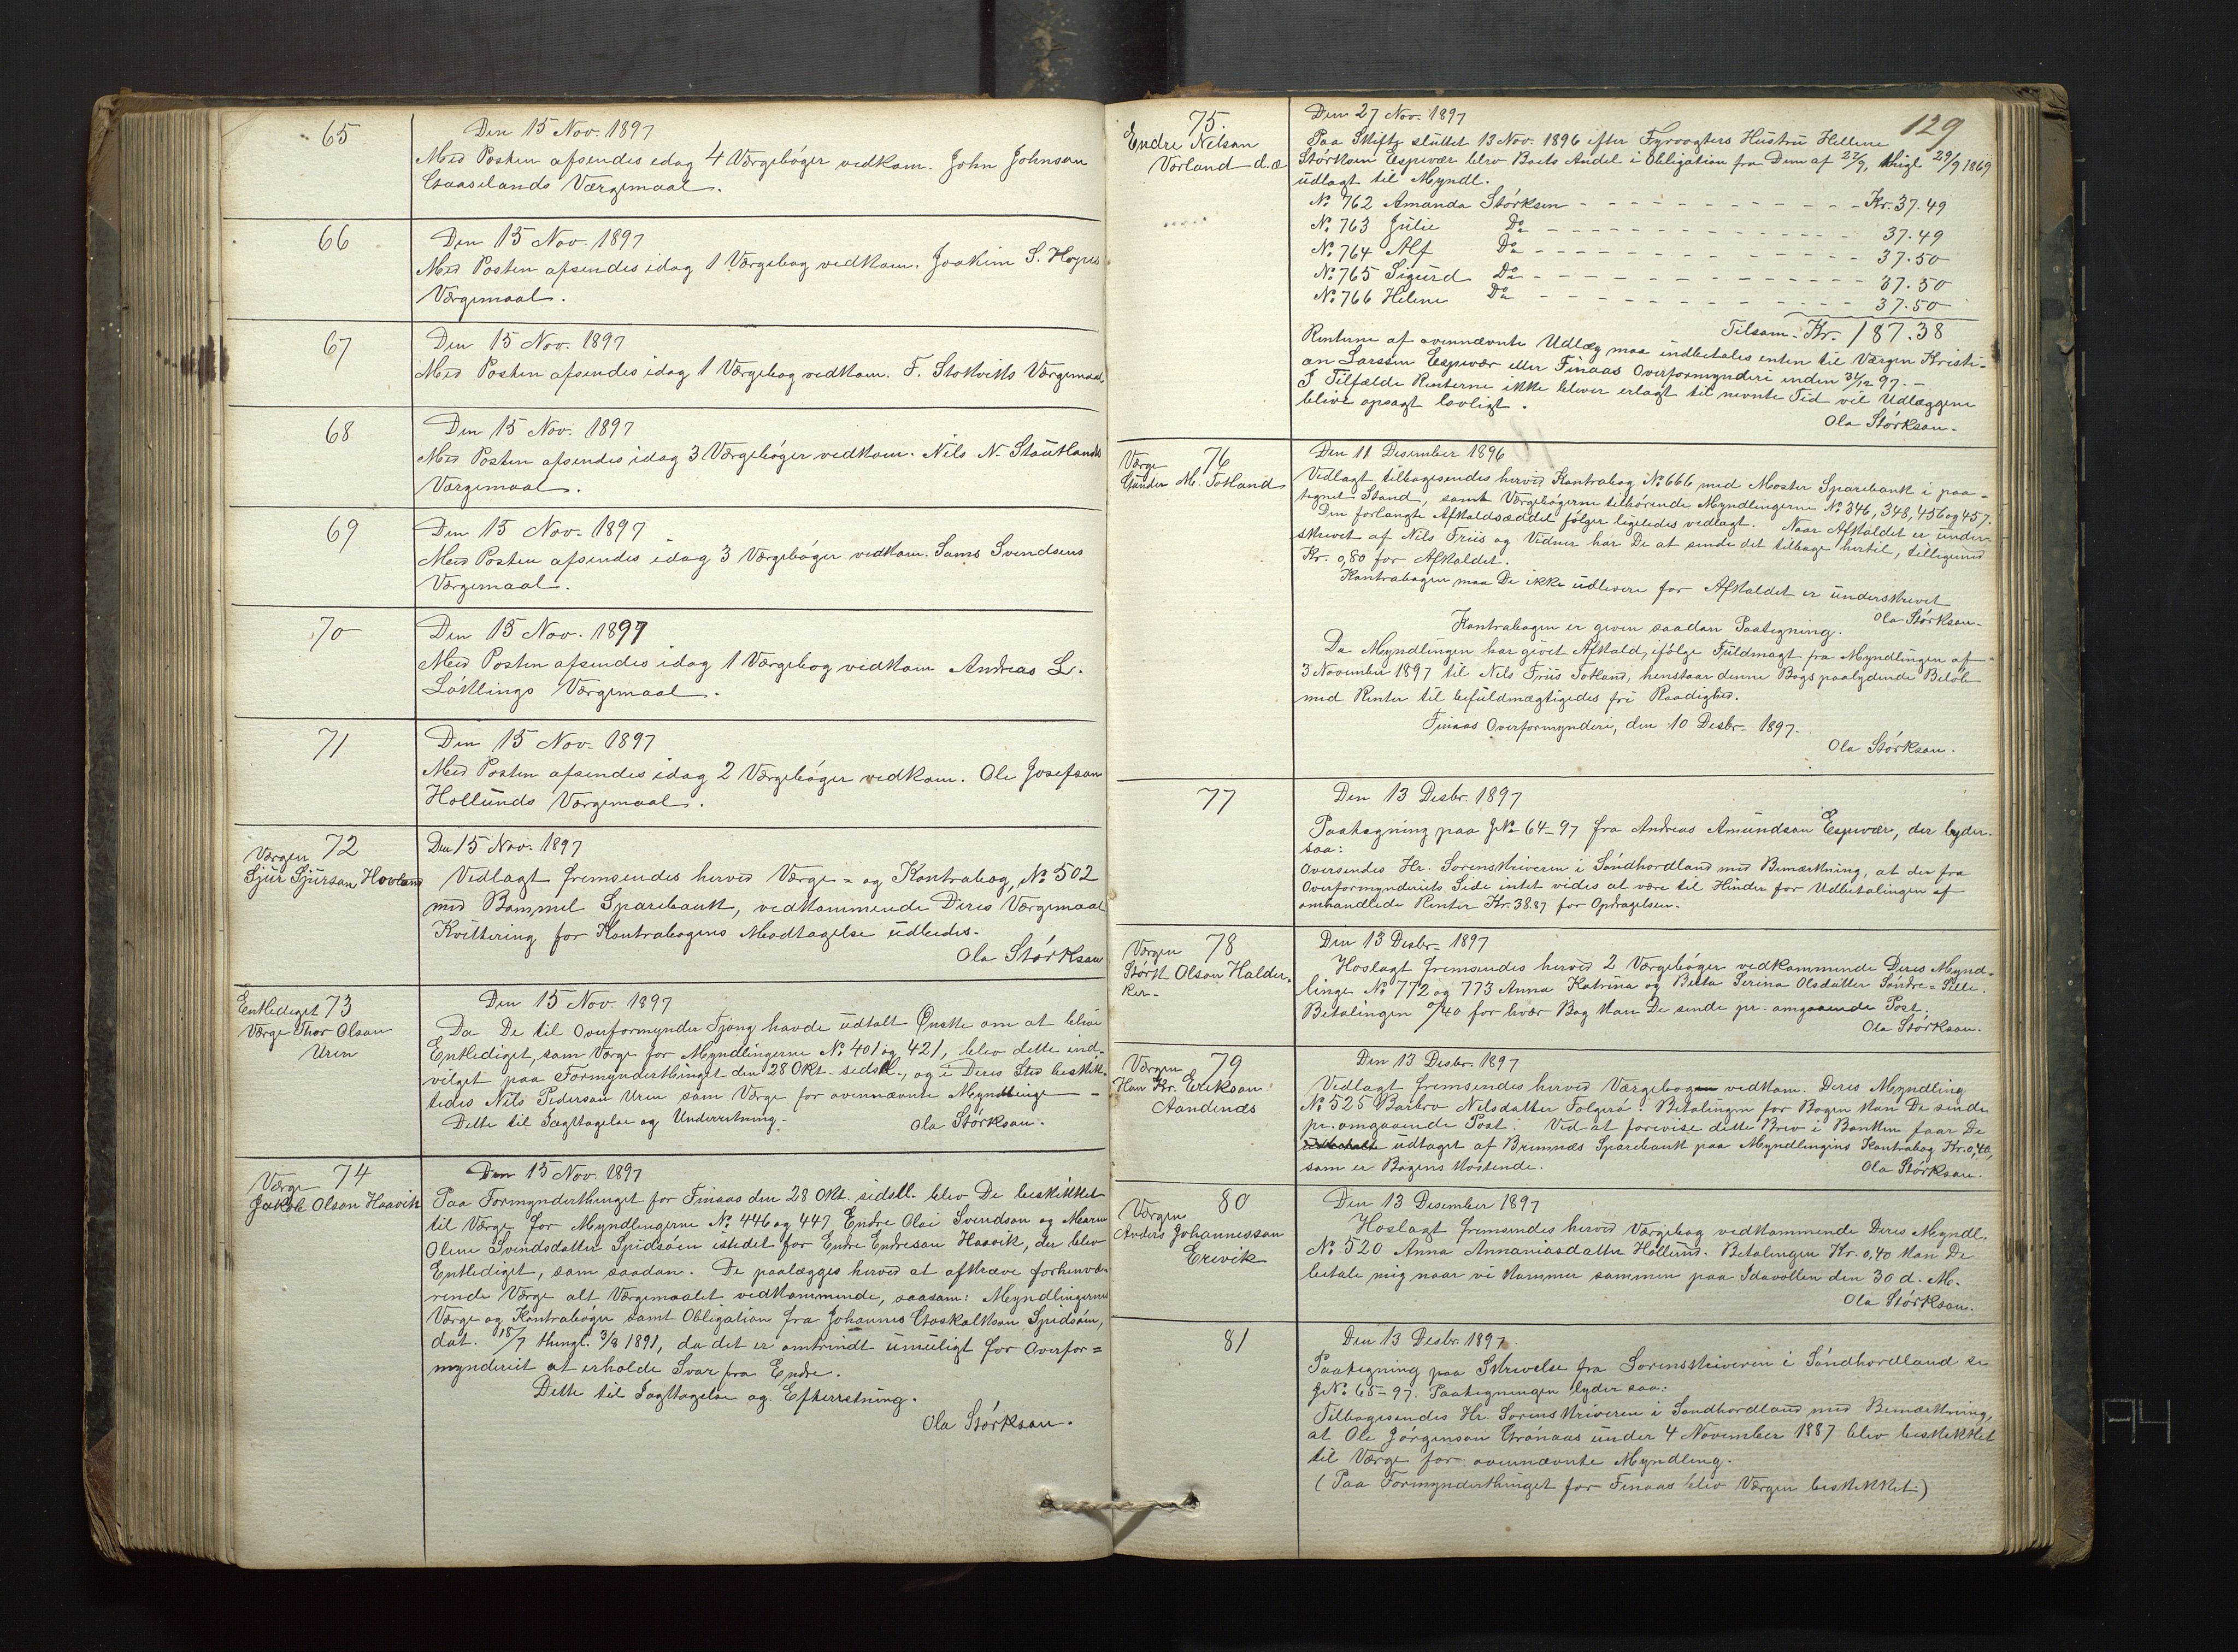 65
Den 15 Nov. 1897
Med Posten afsendes idag 4 Værgebøger vedkom. John Johnson
Gaaselands Værgemaal.
66
Den 15 Nov. 1897
Med Posten afsendes idag 1 Værgebog vedkom. Joakim S. Høyes
Værgemaal.
67
Den 15 Nov. 1897
Med Posten afsendes idag 1 Værgebog vedkom. F. Stokviks Værgemaal
68
Den 15 Nov. 1897
Med Posten afsendes idag 3 Værgebøger vedkom. Nils N. Stautlands
Værgemaal.
69
Den 15 Nov. 1897
Med Posten afsendes idag 3 Værgebøger vedkom. Sams Svendsens
Værgemaal.
70
Den 15 Nov. 1897
Med Posten afsendes idag 1 Værgebog vedkom Andreas L.
Løklings Værgemaal.
71
Den 15 Nov. 1897
Med Posten afsendes idag 2 Værgebøger vedkom. Ole Josefson
Hollunds Værgemaal.
72
Værgen
Sjur Sjurson Hovland
Den 15 Nov. 1897
Vedlagt fremsendes herved Værge- og Kontrabog, No 502
med Bømmel Sparebank, vedkommende Deres Værgemaal
Kvittering for Kontrabogens Modtagelse udbedes.
Ola Størkson
Entlediget 73
Værge Thor Olson
Uren
Den 15 Nov. 1897
Da De til Overformynder Fjong havde udtalt Ønske om at blive
Entlediget, som Værge for Myndlingerne No 401 og 421, blev dette ind-
vilget paa Formynderthinget den 28 Okt. sidstl., og i Deres Sted beskik-
kedes Nils Pederson Uren som Værge for ovennævnte Myndlinge -
Dette til Iagttagelse og Underretning.
Ola Størkson.
Værge 74
Jakob Olson Haavik
Den 15 Nov. 1897
Paa Formynderthinget for Finaas den 28 Okt. sidstl. blev De beskikket
til Værge for Myndlingerne No 446 og 447 Endre Olai Svendson og Maren
Oline Svendsdatter Spidsøen istedet for Endre Endreson Haavik, der blev
Entlediget, som saadan. De paalægges herved at afkræve forhenvæ-
rende Værge alt Værgemaalet vedkommende, saasom: Myndlingernes
Værge og Kontrabøger samt Obligation fra Johannes Goskalkson Spidsøen,
dat. 18/7 thingl. 3/8 1891, da det er omtrindt umuligt for Overfor=
mynderiet at erholde Svar fra Endre.
Dette til Iagttagelse og Efterretning.
Ola Størkson.
129
75.
Endre Nelson
Vorland d.æ
Den 27 Nov. 1897
Paa Skifte sluttet 13 Nov. 1896 efter Fyrvogters Hustru Hellene
Størkson Espevær blev Boets Andel i Obligation fra Dem af 27/9, thigl 29/9 1869
udlagt til Myndl.
No 762 Amanda Størksen - - - - Kr. 37.49
No 763 Julie Do - - - - 37.49
No 764 Alf Do - - - - 37.50
No 765 Sigurd Do - - - - 37.50
No 766 Helene Do - - - - 37.50
Tilsam. Kr. 187.38
Renterne af ovennævnte Udlæg maa indbetales enten til Værgen Kristi-
an Larssen Espevær eller Finaas Overformynderi inden 31/12 97. -
I Tilfælde Renterne ikke bliver erlagt til nevnte Tid vil Udlæggene
blive opsagt lovligt.
Ola Størkson.
Værge 76
Gunder M. Totland
Den 11 Desember 1896
Vedlagt tilbagesendes herved Kontrabog No 666 med Moster Sparebank i paa-
tegnet Stand, samt Værgebøgerne tilhørende Myndlingerne No 346, 348, 456 og 457.
Den forlangte Afkaldsæddel følger ligeledes vedlagt. Naar Afkaldet er under-
skrevet af Nils Friis og Vidner har De at sende det tilbage hertil, tilligemed
Kr. 0,80 for Afkaldet.
Kontrabogen maa De ikke udlevere før Afkaldet er underskrevet
Ola Størkson.
Kontrabogen er given saadan Paategning.
Da Myndlingen har givet Afkald, ifølge Fuldmagt fra Myndlingen af
3 November 1897 til Nils Friis Totland, henstaar denne Bogs paalydende Beløb
med Renter til befuldmægtigedes fri Raadighed.
Finaas Overformynderi, den 10 Desbr. 1897.
Ola Størkson.
77
Den 13 Desbr. 1897
Paategning paa JNo 64-97 fra Andreas Amundson Espevær, der lyder
saa:
Oversendes Hr. Sorenskriveren i Søndhordland med Bemærkning, at der fra
Overformynderiets Side intet vides at være til Hinder for Udbetalingen af
omhandlede Renter Kr. 38.87 for Opdragelsen.
Værgen 78
Størk Olson Halder-
ker-
Den 13 Desbr. 1897
Hoslagt fremsendes herved 2 Værgebøger vedkommende Deres Mynd-
linge No 772 og 773 Anna Katrina og Berta Serina Olsdatter Søndre=
Betalingen 0/40 for hvær Bog kan De sende pr. omgaaende Post.
Ola Størkson.
Værgen 79
Hans Kr. Erikson
Aandenæs
Den 13 Desbr. 1897
Vedlagt fremsendes herved Værgebogen vedkom. Deres Myndling
No 525 Barbro Nilsdatter Folgerø. Betalingen for Bogen kan De sende
pr. omgaaende Post. Ved at forevise dette Brev i Banken faar De
udtaget af Bremnæs Sparebank paa Myndlingens Kontrabog Kr. 0,40,
som er Bogens Kostende.
Ola Størkson.
80
Værgen
Anders Johannesson
Erevik
Den 13 Desember 1897
Hoslagt fremsendes herved Værgebog vedkommende Deres Myndl.
No 520 Anna Annaniasdatter Hollund. Betalingen Kr. 0,40 kan De
betale mig naar vi kommer sammen paa Idavollen den 30 d. M.
Ola Størkson.
81
Den 13 Desbr. 1897.
Paategning paa Skrivelse fra Sorenskriveren i Søndhordland se
JNo 65-97. Paategningen lyder saa:
Tilbagesendes Hr. Sorenskriveren i Søndhordland med Bemærkning,
at Ole Jørgenson Grønaas under 4 November 1887 blev beskikket
til Værge for ovennævnte Myndling.
(Paa Formynderthinget for Finaas blev Værgen beskikket.)